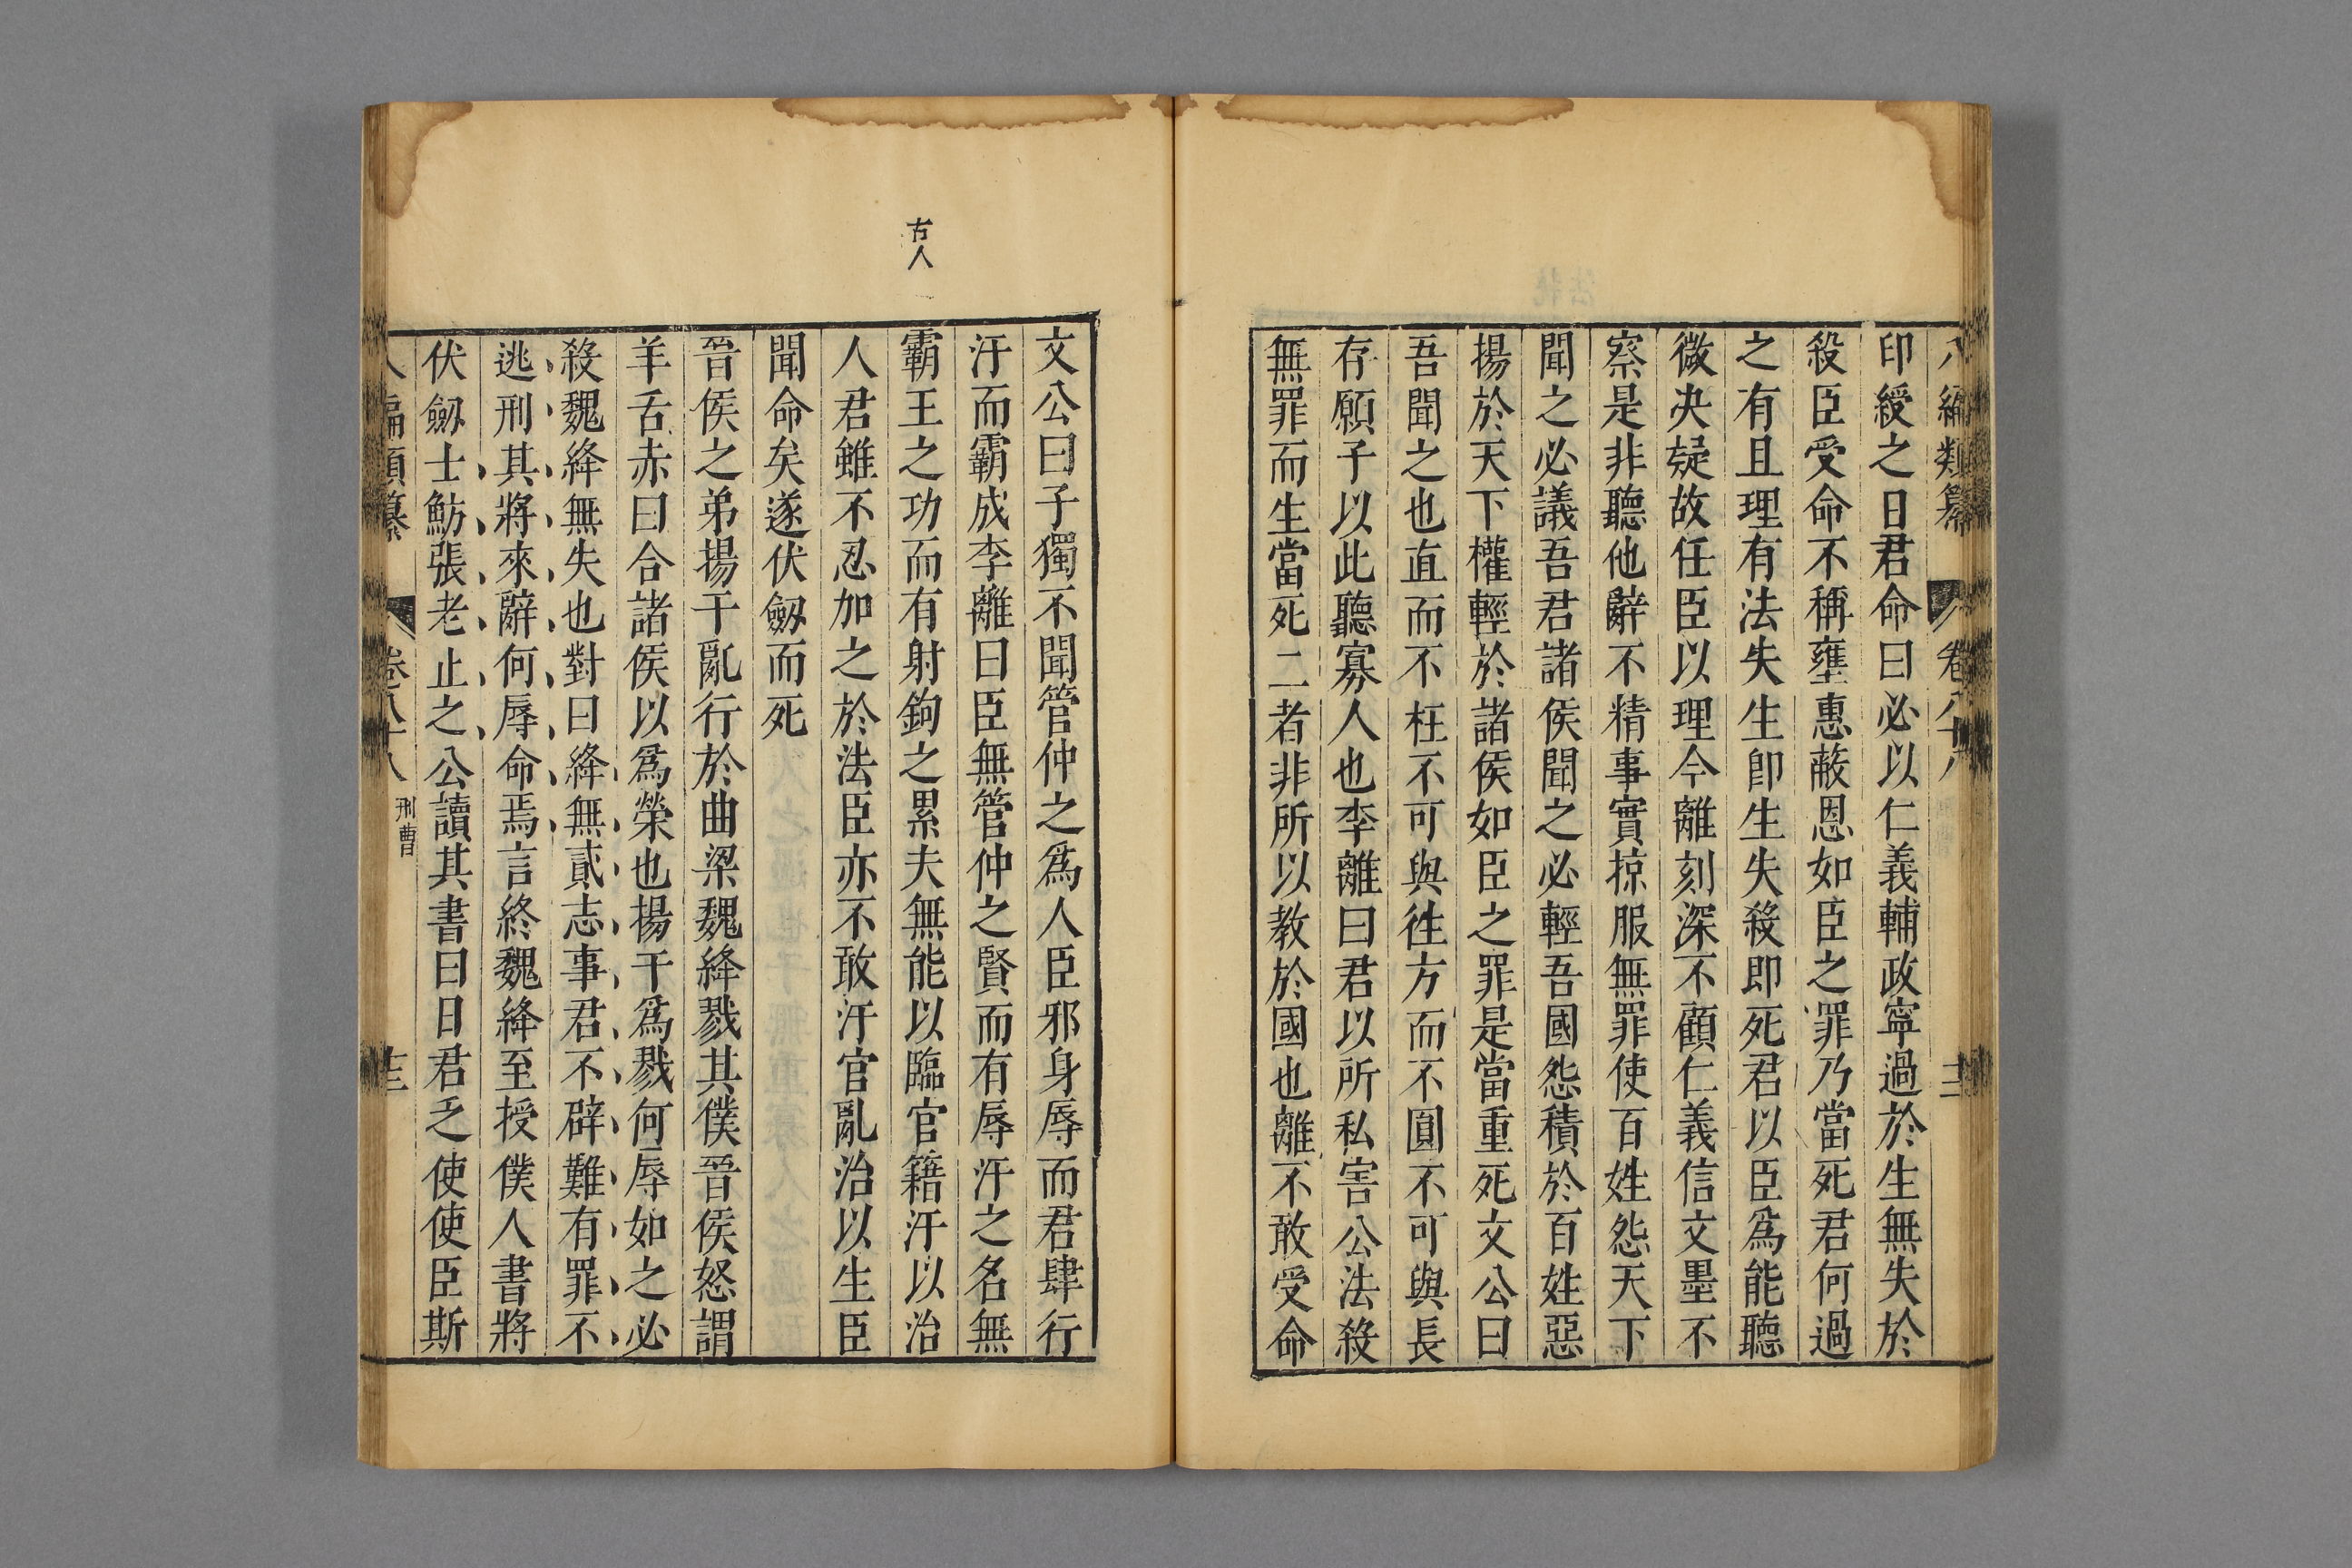 八編類纂 卷八十八 十二
印綬之日君命曰必以仁義輔政寧過於生無失於
殺臣受命不稱壅惠蔽恩如臣之罪乃當死君何過
之有且理有法失生即生失殺即死君以臣爲能聽
微决疑故任臣以理今離刻深不顧仁義信文墨不
察是非聽他辭不精事實掠服無罪使百姓怨天下
聞之必議吾君諸侯聞之必輕吾國怨積於百姓惡
揚於天下權輕於諸侯如臣之罪是當重死文公曰
吾聞之也直而不枉不可與徃方而不圓不可與長
存願子以此聽寡人也李離曰君以所私害公法殺
無罪而生當死二者非所以教於國也離不敢受命
文公曰子獨不聞管仲之爲人臣邪身辱而君肆行
汙而霸成李離曰臣無管仲之賢而有辱汙之名無
霸王之功而有射鉤之累夫無能以臨官籍汙以治
人君雖不忍加之於法臣亦不敢汙官亂治以生臣
聞命矣遂伏劔而死
晉侯之弟揚干亂行於曲梁魏絳戮其僕晉侯怒謂
羊舌赤曰合諸侯以爲榮也揚干爲戮何辱如之必
殺魏絳無失也對曰絳無貳志事君不辟難有罪不
逃刑其將來辭何辱命焉言終魏絳至授僕人書將
伏劔士魴張老止之公讀其書曰日君乏使使臣斯
八編類纂 卷八十八 刑曹 十三
古人